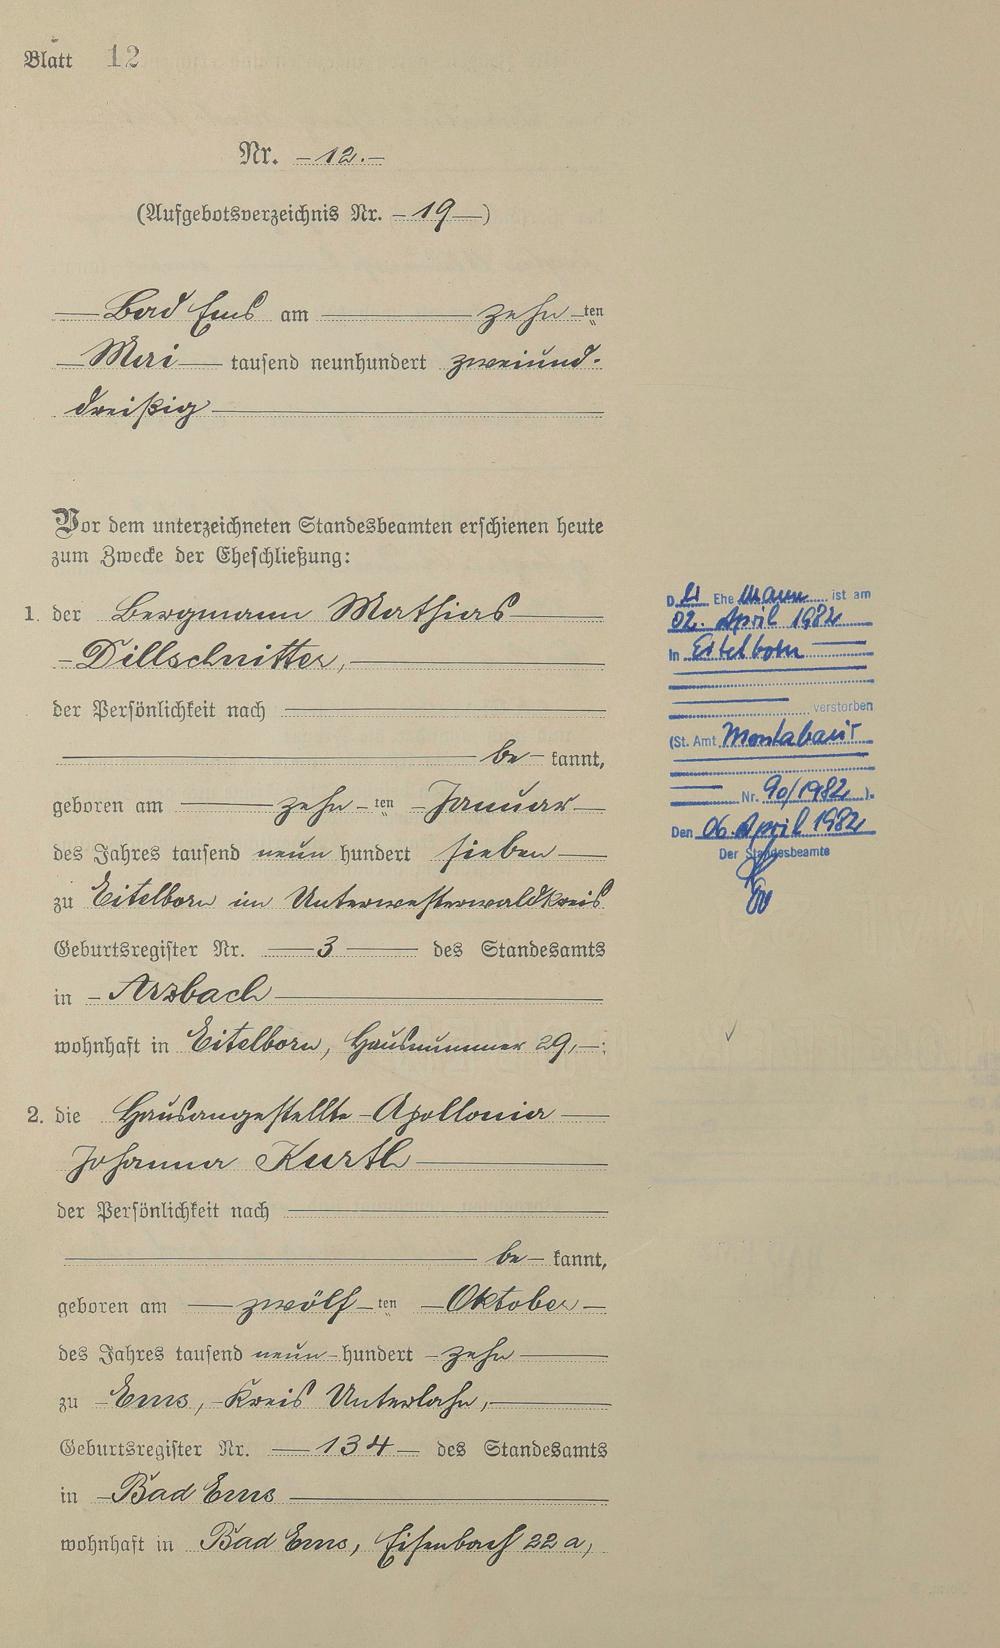 Blatt 12
Nr. – 12. –
(Aufgebotsverzeichnis Nr. – 19 –)
Bad Ems am zehn ten
Mai tausend neunhundert zweiund-
dreißig
Vor dem unterzeichneten Standesbeamten erschienen heute
zum Zwecke der Eheschließung:
1. der Bergmann Mathias
Dillschnitter,
der Persönlichkeit nach
be kannt,
geboren am zehn ten Januar
des Jahres tausend neun hundert sieben
zu Eitelborn im Unterwesterwaldkreis
Geburtsregister Nr. 3 des Standesamts
in Arzbach
wohnhaft in Eitelborn, Hausnummer 29,
2. die Hausangestellte Apollonia
Johanna Kurth
der Persönlichkeit nach
be kannt,
geboren am zwölf ten Oktober
des Jahres tausend neun hundert zehn
zu Ems, Kreis Unterlahn,
Geburtsregister Nr. 134 des Standesamts
in Bad Ems
wohnhaft in Bad Ems, Eisenbach 22 a,
D er Ehe mann ist am
02. April 1982
in Eitelborn
verstorben
(St. Amt Montabaur
Nr. 90/1982 ).
Den 06. April 1982
Der Standesbeamte